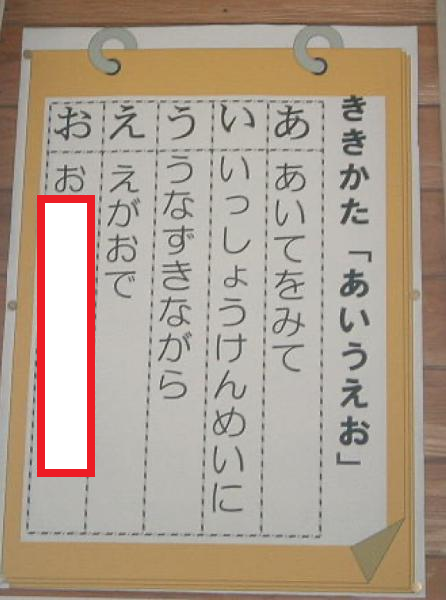 ききかた「あいうえお」
あ あいてをみて
い いっしょうけんめいに
う うなずきながら
え えがおで
お お